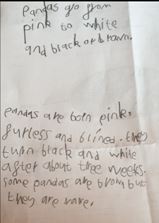 Pandas go from
pink to white
and black or brown.
pandas are born pink,
furless and blined. they
turn black and white
after about thee weeks.
some pandas are brown but
they are rare.